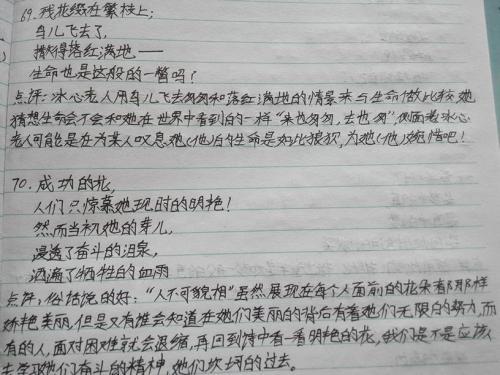 69. 残花缀在繁枝上；
鸟儿飞去了，
撒得落红满地——
生命也是这般的一瞥吗？
点评：冰心老人用鸟儿飞去匆匆和落红满地的情景来与生命做比较，她
猜想生命会不会和她在世界中看到的一样“来也匆匆，去也匆”，侧面老冰心
老人可能是在为某人叹息她(他)的生命是如此狼狈，为她(他)惋惜吧！
70. 成功的花，
人们只惊慕她现时的明艳！
然而当初她的芽儿，
浸透了奋斗的泪泉，
洒遍了牺牲的血雨
点评：俗话说的好：“人不可貌相”虽然展现在每个人面前的花朵有那那样
娇艳美丽，但是又有谁会知道在她们美丽的背后有着她们无限的努力，而
有的人，面对困难就会退缩，再回到诗中看一看明艳的花，我们是不是应该
去学习她们奋斗的精神，她们坎坷的过去。